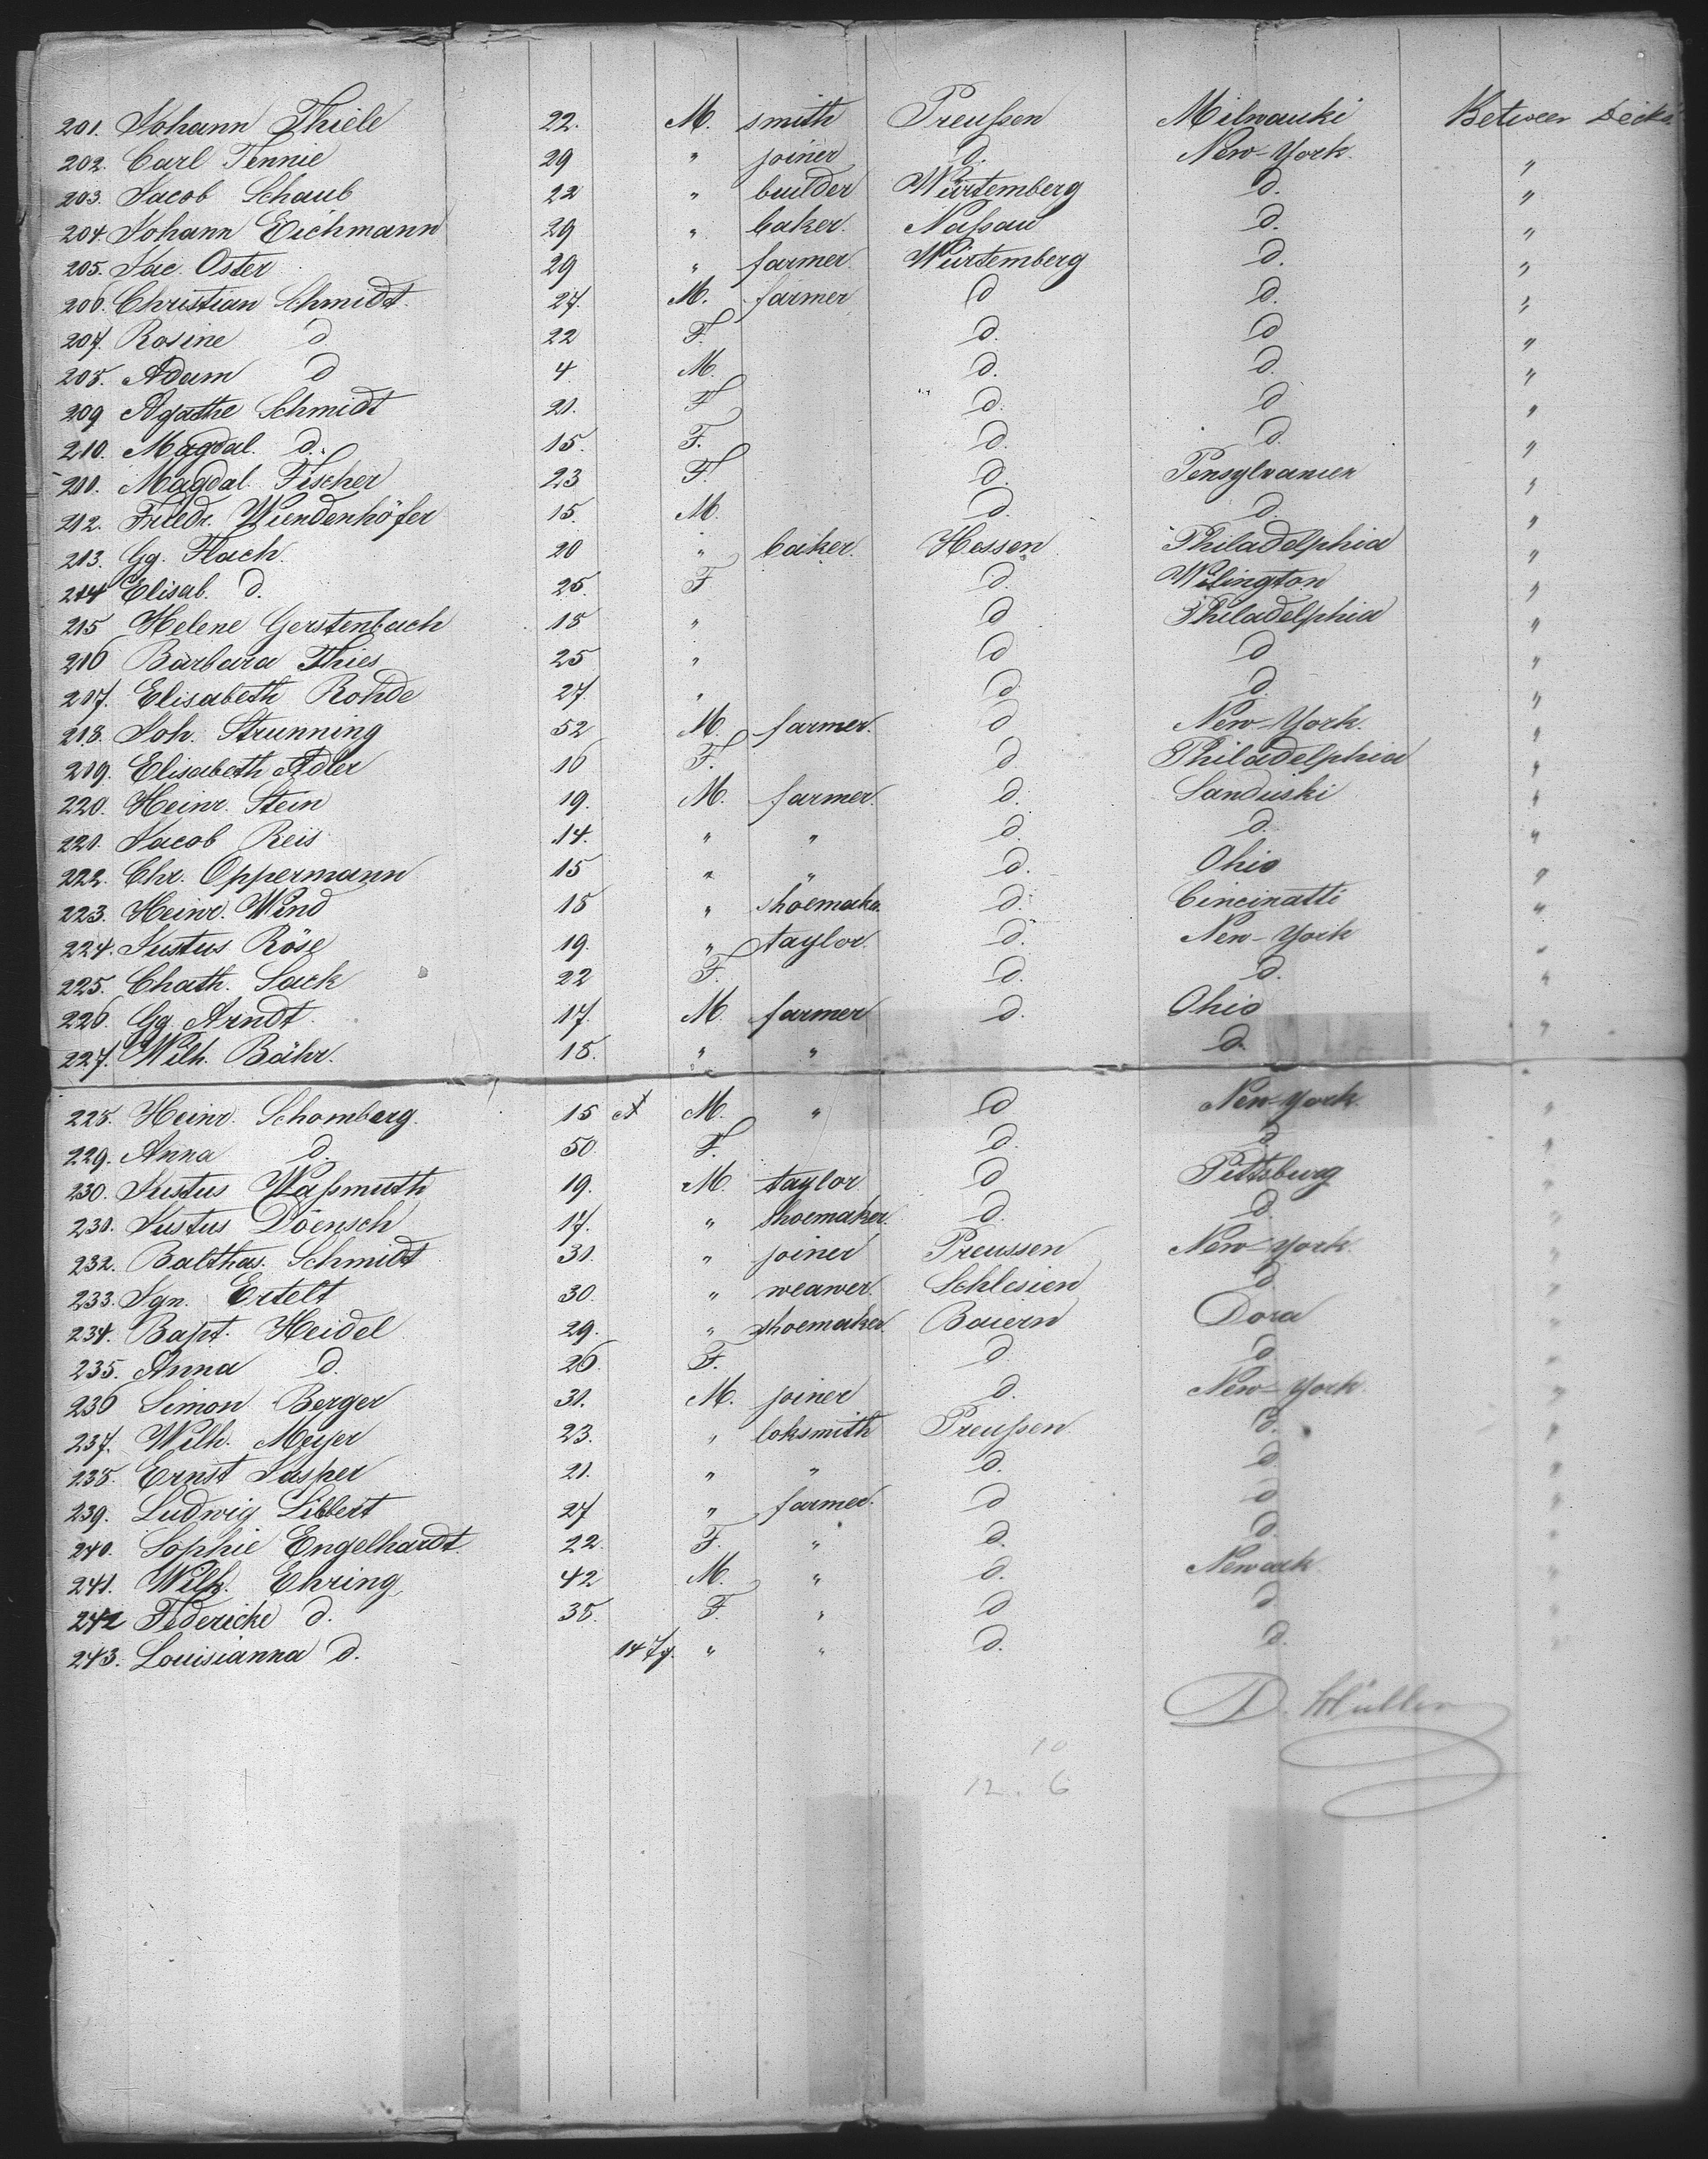 201. Johann Thiele 22. M. smith Preußen Milwauki Between Decks
202. Carl Tennie 29 " joiner d. New-York. "
203. Jacob Schaub 22 " builder Würtemberg d. "
204. Johann Eichmann 29 " baker. Naßau d. "
205. Jac. Oster 29 " farmer. Würtemberg d. "
206. Christian Schmidt. 27. M. farmer d d. "
207. Rosine d 22 F. d. d "
208. Adam d 4 M. d. d. "
209 Agathe Schmidt 21. F d. d "
210. Magdal. d. 15. F. d. d. "
211. Magdal. Fischer 23 F. d. Pensylvanien "
212. Friedr. Wiendenhöfer 15. M. d. d. "
213. Gg. Flach. 20 " baker. Hessen Philadelphia "
214 Elisab. d. 25. F d. Wilington "
215 Helene Gerstenbach 18 " d Philadelphia "
216 Barbara Thies 25 " d d "
217. Elisabeth Rohde 27. " d d. "
218. Joh. Strunning 52 M. farmer. d New-York. "
219. Elisabeth Adler 16 F. d Philadelphia "
220. Heinr. Stein 19. M. farmer. d. Sanduski "
221. Jacob Reis 14. " " d. d. "
222. Chr. Oppermann 15 " " d. Ohio "
223. Heinr. Wend 18 " shoemaker d. Cincinatti "
224. Justus Röse 19. " taylor. d. New-York "
225. Chath. Sack 22 F. d. d. "
226. Gg. Arndt. 17. M. farmer d. Ohio "
227. Wilh. Bähr. 18. " " d. "
228. Heinr. Schomberg. 15 M. " d New-York. "
229. Anna d. 50. F. d. d. "
230. Justus Waßmuth 19. M. taylor d Pittsburg "
231. Justus Döensch 17. " shoemaker. d. d. "
232. Balthas. Schmidt 31. " joiner Preussen New-York. "
233. Ign. Ertelt 30. " weawer. Schlesien d. "
234. Bapt. Heidel 29. " shoemaker. Baiern Dora "
235. Anna d. 26. F. d d. "
236 Simon Berger 31. M. joiner d. New-York. "
237. Wilh. Meyer 23. " loksmith Preußen. d. "
238. Ernst Jasper 21. " " d. d. "
239. Ludwig Libbert 27 " farmer. d d "
240. Sophie Engelhardt. 22. F. " d. d. "
241. Wilh. Ehring 42 M. " d. Newark. "
242 Federicke d. 38. F. " d d. "
243. Louisianna d. 14 Tg. " " d. d. "
10
12. 6